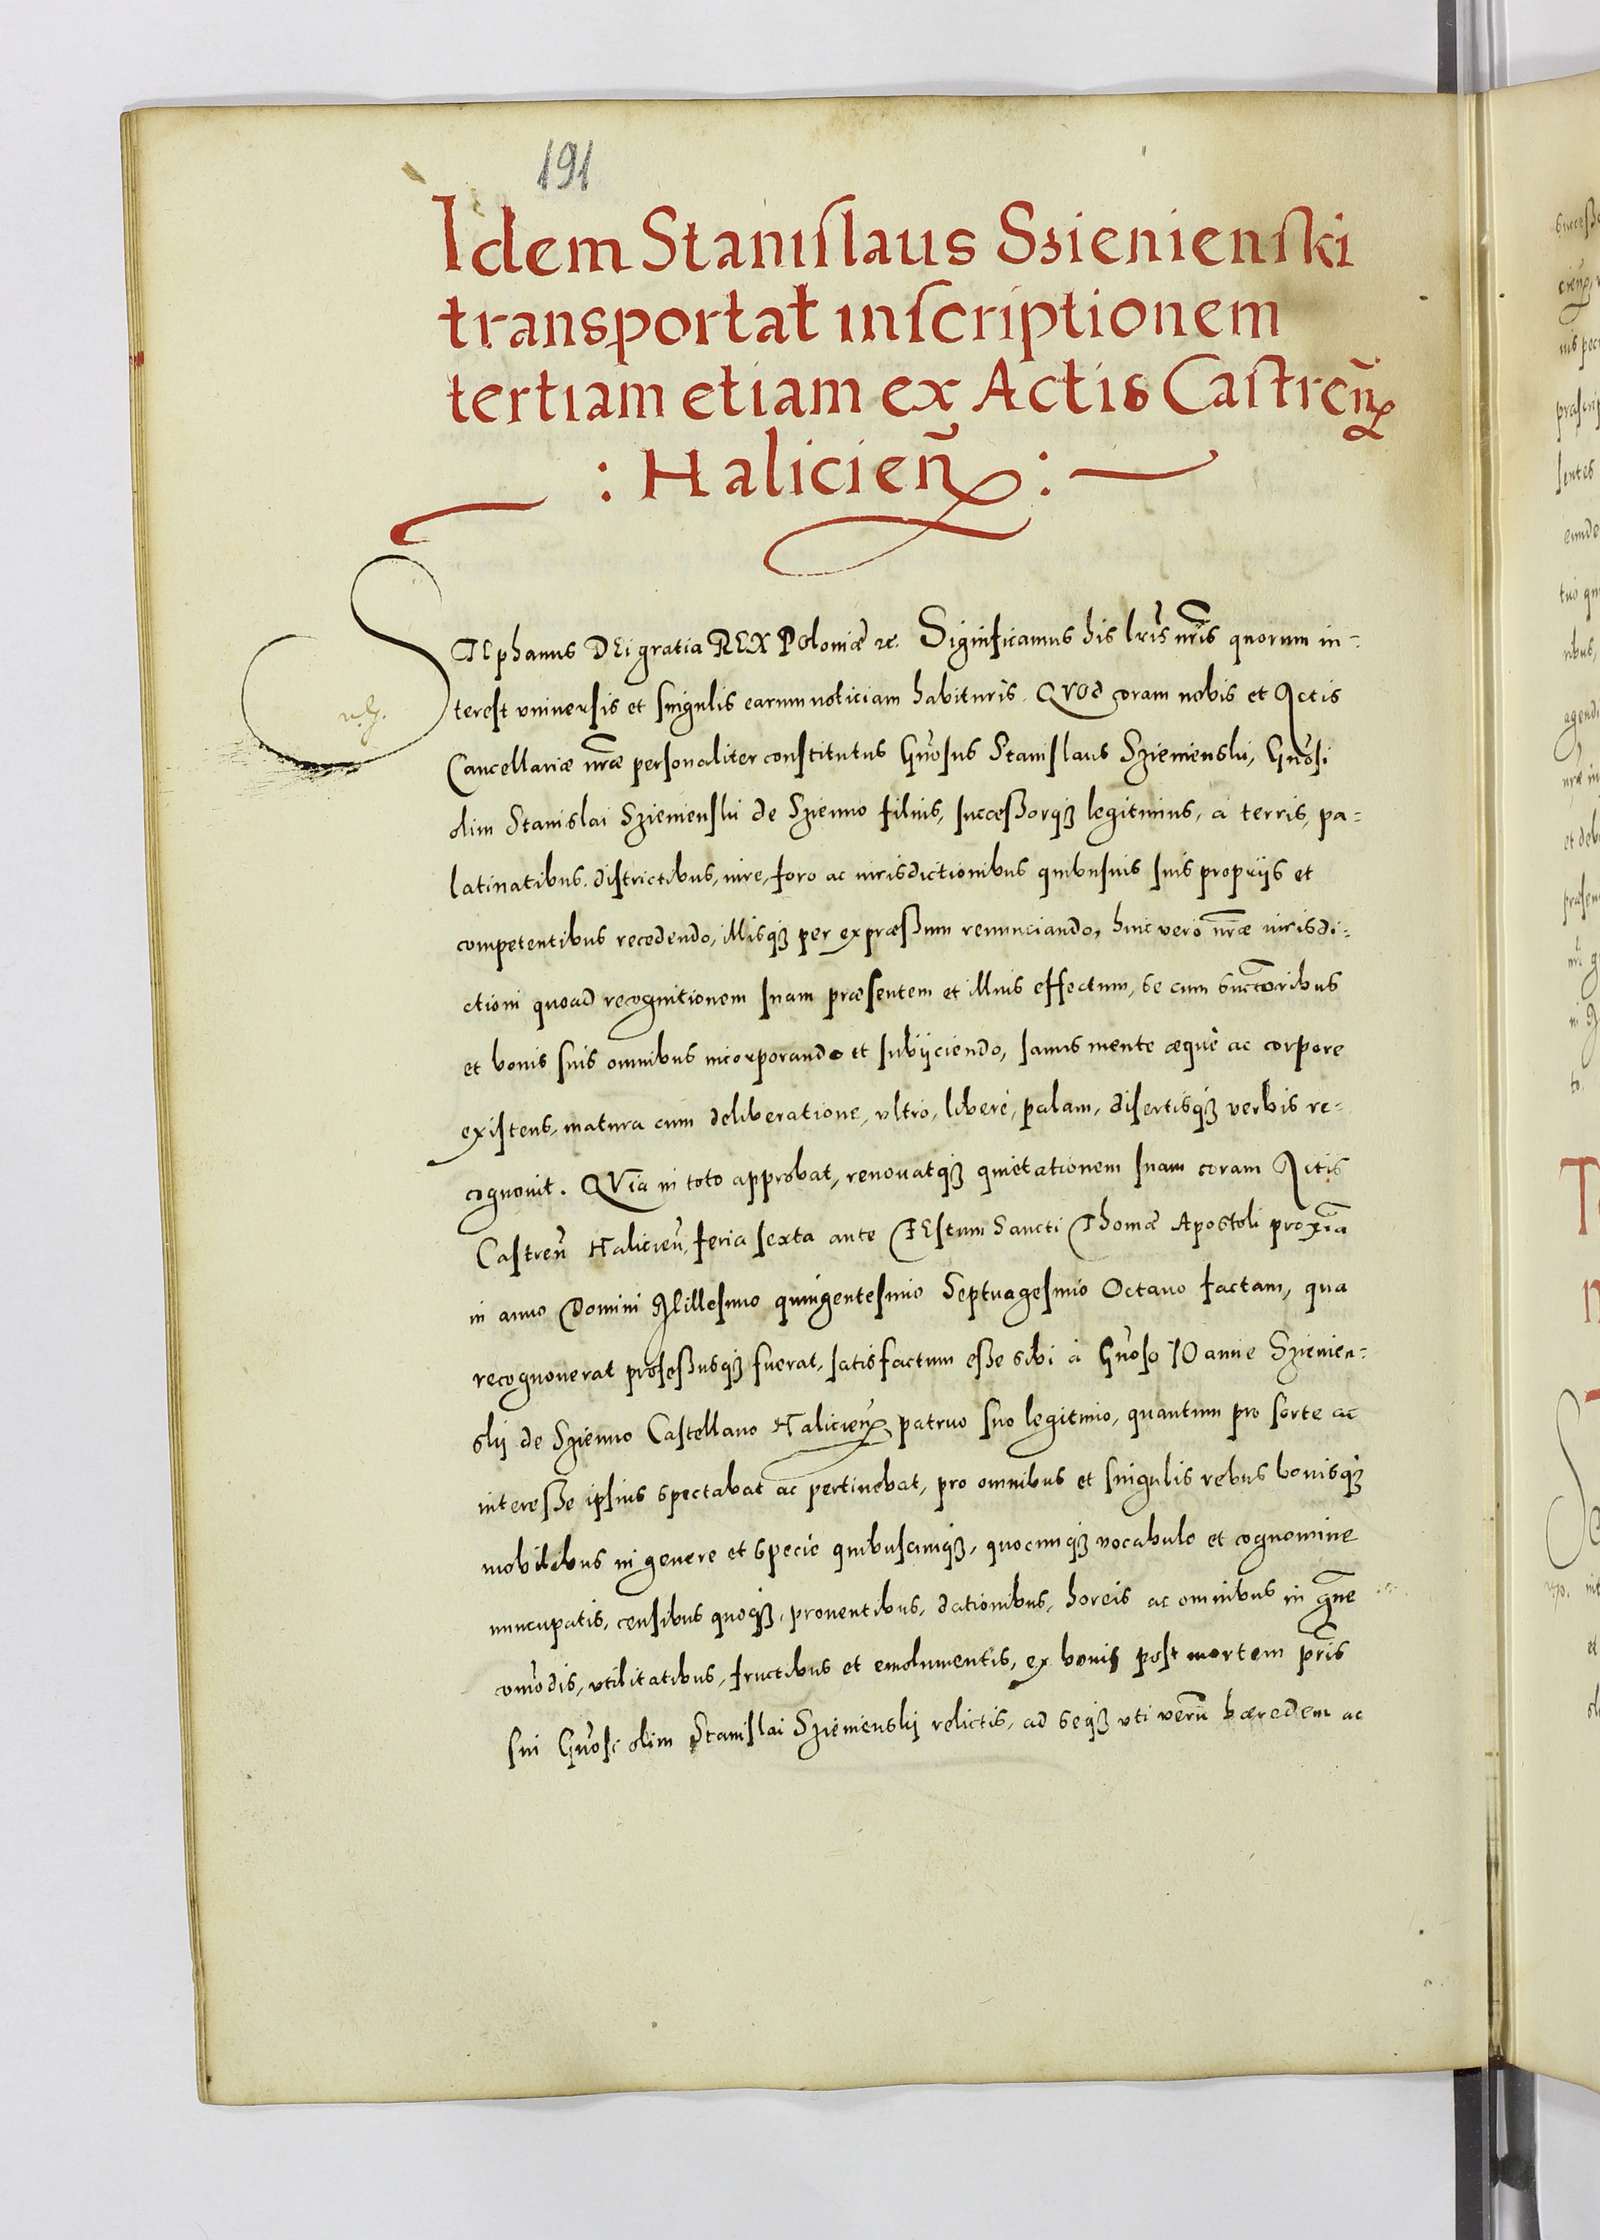 191
Idem Stanislaus Szienienski
transportat inscriptionem
tertiam etiam ex Actis Castren̄
: Halicien̄ :
STEphanus DEi gratia REX Poloniæ ꝛc. Significamus his lr̃is nr̃is quorum in-
terest vniuersis et singulis earum noticiam habituris. QVOd coram nobis et Actis
Cancellariæ nr̃æ personaliter constitutus Gn̄osus Stanislaus Szienienski, Gn̄osi
olim Stanislai Szienienskii de Szienno filius, successorqꝫ legitimus, a terris, pa-
latinatibus, districtibus, iure, foro ac iurisdictionibus quibusuis suis proprijs et
competentibus recedendo, illisqꝫ per expræssum renunciando, huic vero nr̃æ iurisdi-
ctioni quoad recognitionem suam præsentem et illius effectum, se cum succ̃oribus
et bonis suis omnibus incorporando et subijciendo, sanus mente æquè ac corpore
existens, matura cum deliberatione, vltrò, liberè, palam, disertisqꝫ verbis re-
cognouit. QVia in toto approbat, renouatqꝫ quietationem suam coram Actis
Castren̄ Halicien̄, feria sexta ante FEstum Sancti Thomæ Apostoli prox̃ia
in anno Domini Millesimo quingentesimo Septuagesimo Octauo factam, qua
recognouerat professusqꝫ fuerat, satisfactum esse sibi à Gn̄oso IOanne Szienien-
skij de Szienno Castellano Halicien̄, patruo suo legitimo, quantum pro sorte ac
interesse ipsius spectabat ac pertinebat, pro omnibus et singulis rebus bonisqꝫ
mobilibus in genere et specie quibuscunqꝫ, quocunqꝫ vocabulo et cognomine
nuncupatis, censibus quoqꝫ, prouentibus, dationibus, horeis ac omnibus in gñe
com̄odis, vtilitatibus, fructibus et emolumentis, ex bonis post mortem pr̃is
sui Gn̄osi olim Stanislai Szienienskij relictis, ad seqꝫ vti verũ hæredem ac